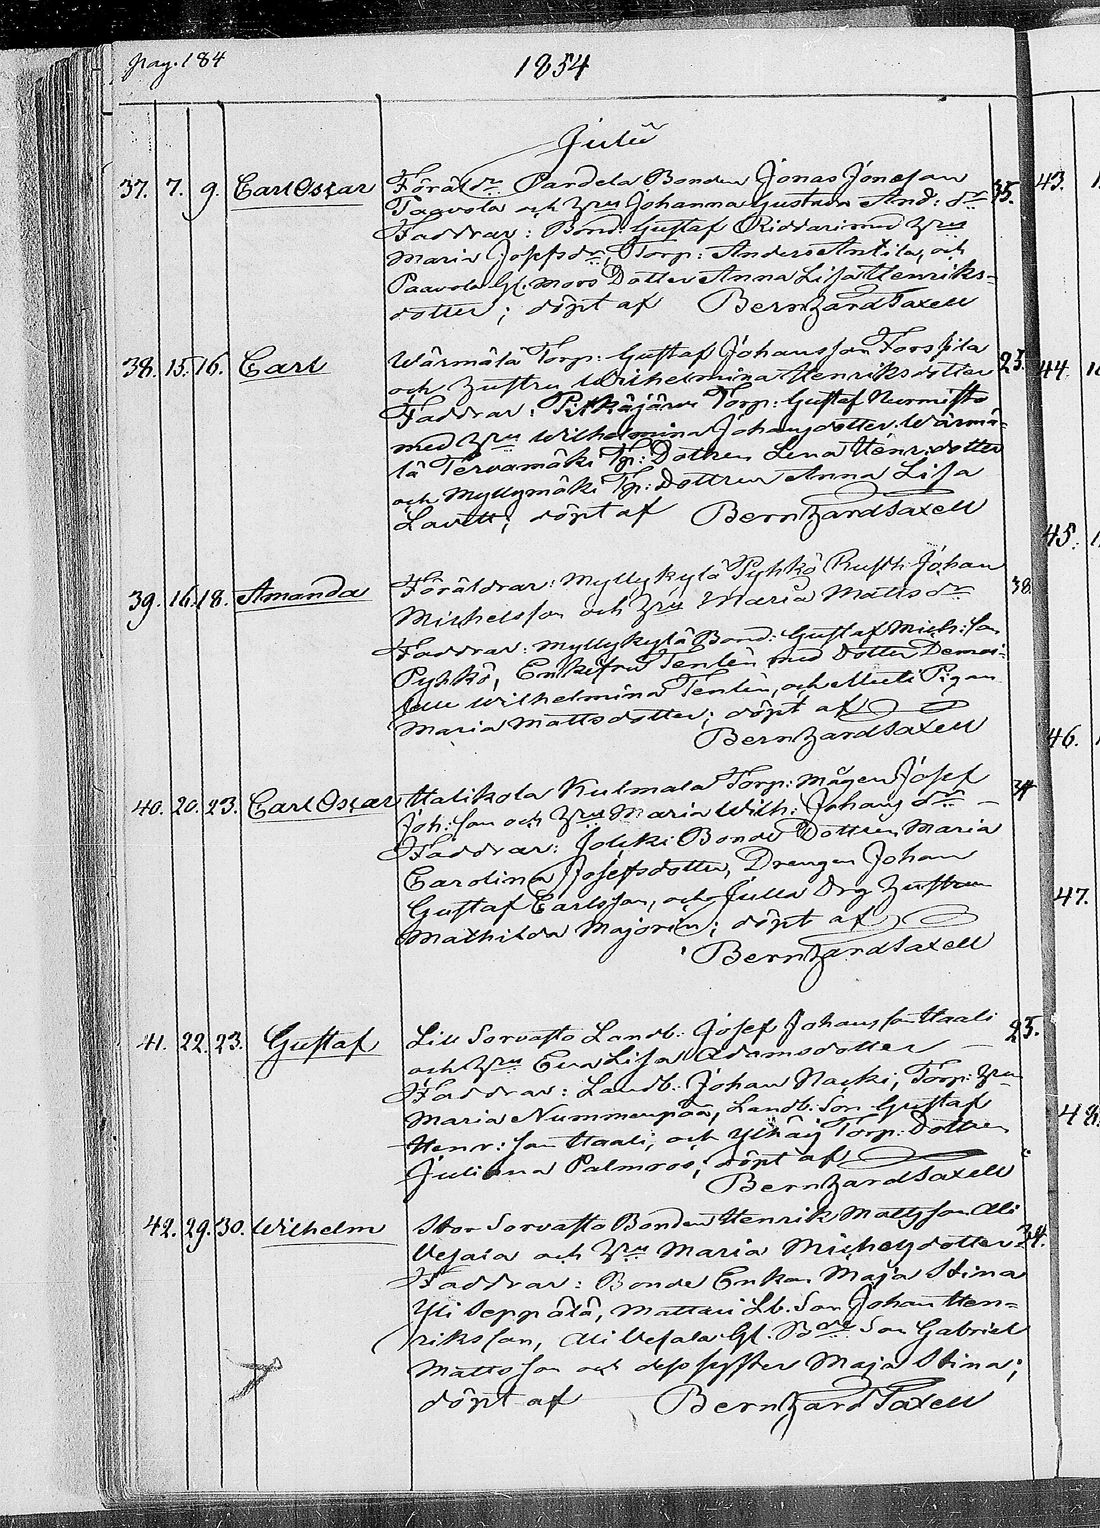 pag. 184
1854
Julii
37. 7. 9. Carl Oscar Föräldr Pardela Bonden Jonas Jonasson 35. 43.
Paavola och Hru Johanna Gustava And: dr
Faddrar: Bond: Gustaf Riddari med Hru
Maria Josefs dr, Torp: Anders Anttila, och
Paavola Gl. Mors Dotter Anna Lisa Henriks-
dotter; döpt af Bernhard Saxell
38. 15. 16. Carl Wärmälä Torp: Gustaf Johansson Forssila 25. 44.
och Hustru Wilhelmina Henriksdotter
Faddrar: Pitkäjärvi Torp: Gustaf Nurmisto
med Hru Wilhelmina Johansdotter. Wärmä-
lä Tervamäki Tp: Dottren Lena Henr:dotter
och Myllymäki Tp: Dottren Anna Lisa
döpt af Bernhard Saxell
45.
39. 16. 18. Amanda Föräldrar: Myllykylä Pyhkö Rusth: Johan 38.
Michelsson och Hru Maria Matts dr
Faddrar: Myllykylä Bond: Gustaf Mich:son
Pyhkö, Enkefru Tenlén med Dotter Demoi-
selle Wilhelmina Tenlén, och Pigan
Maria Mattsdotter; döpt af
Bernhard Saxell
46.
40. 20. 23. Carl Oscar Halikola Kulmala Torp: Mågen Josef 34
Joh:son och Hru Maria Wilh: Johans dr –
Faddrar: Bonde Dottren Maria
Carolina Josefsdotter, Drengen Johan
Gustaf Carlsson, och Julla Drg Hustrun
Mathilda Majorin; döpt af
Bernhard Saxell
47.
41. 22. 23. Gustaf Lill Sorvasto Landb: Josef Johansson Haali 25.
och Hru Eva Lisa Adamsdotter –
Faddrar: Landb: Johan Nacki, Torp: Hru
Maria Nummenpää, Landb: Son Gustaf
Henr:son Haali, och Torp: Dottren
Juliana Palmros; döpt af
Bernhard Saxell
48.
42. 29. 30. Wilhelm Stor Sorvasto Bonden Henrik Mattsson Ali 34.
Vesala och Hru Maria Michelsdotter
Faddrar: Bonde Enkan Maja Stina
Yli Seppälä, Mattari Lb. Son Johan Hen-
riksson, Ali Vesala Gl. Bde Son Gabriel
Mattsson och dess syster Maja Stina;
döpt af Bernhard Saxell